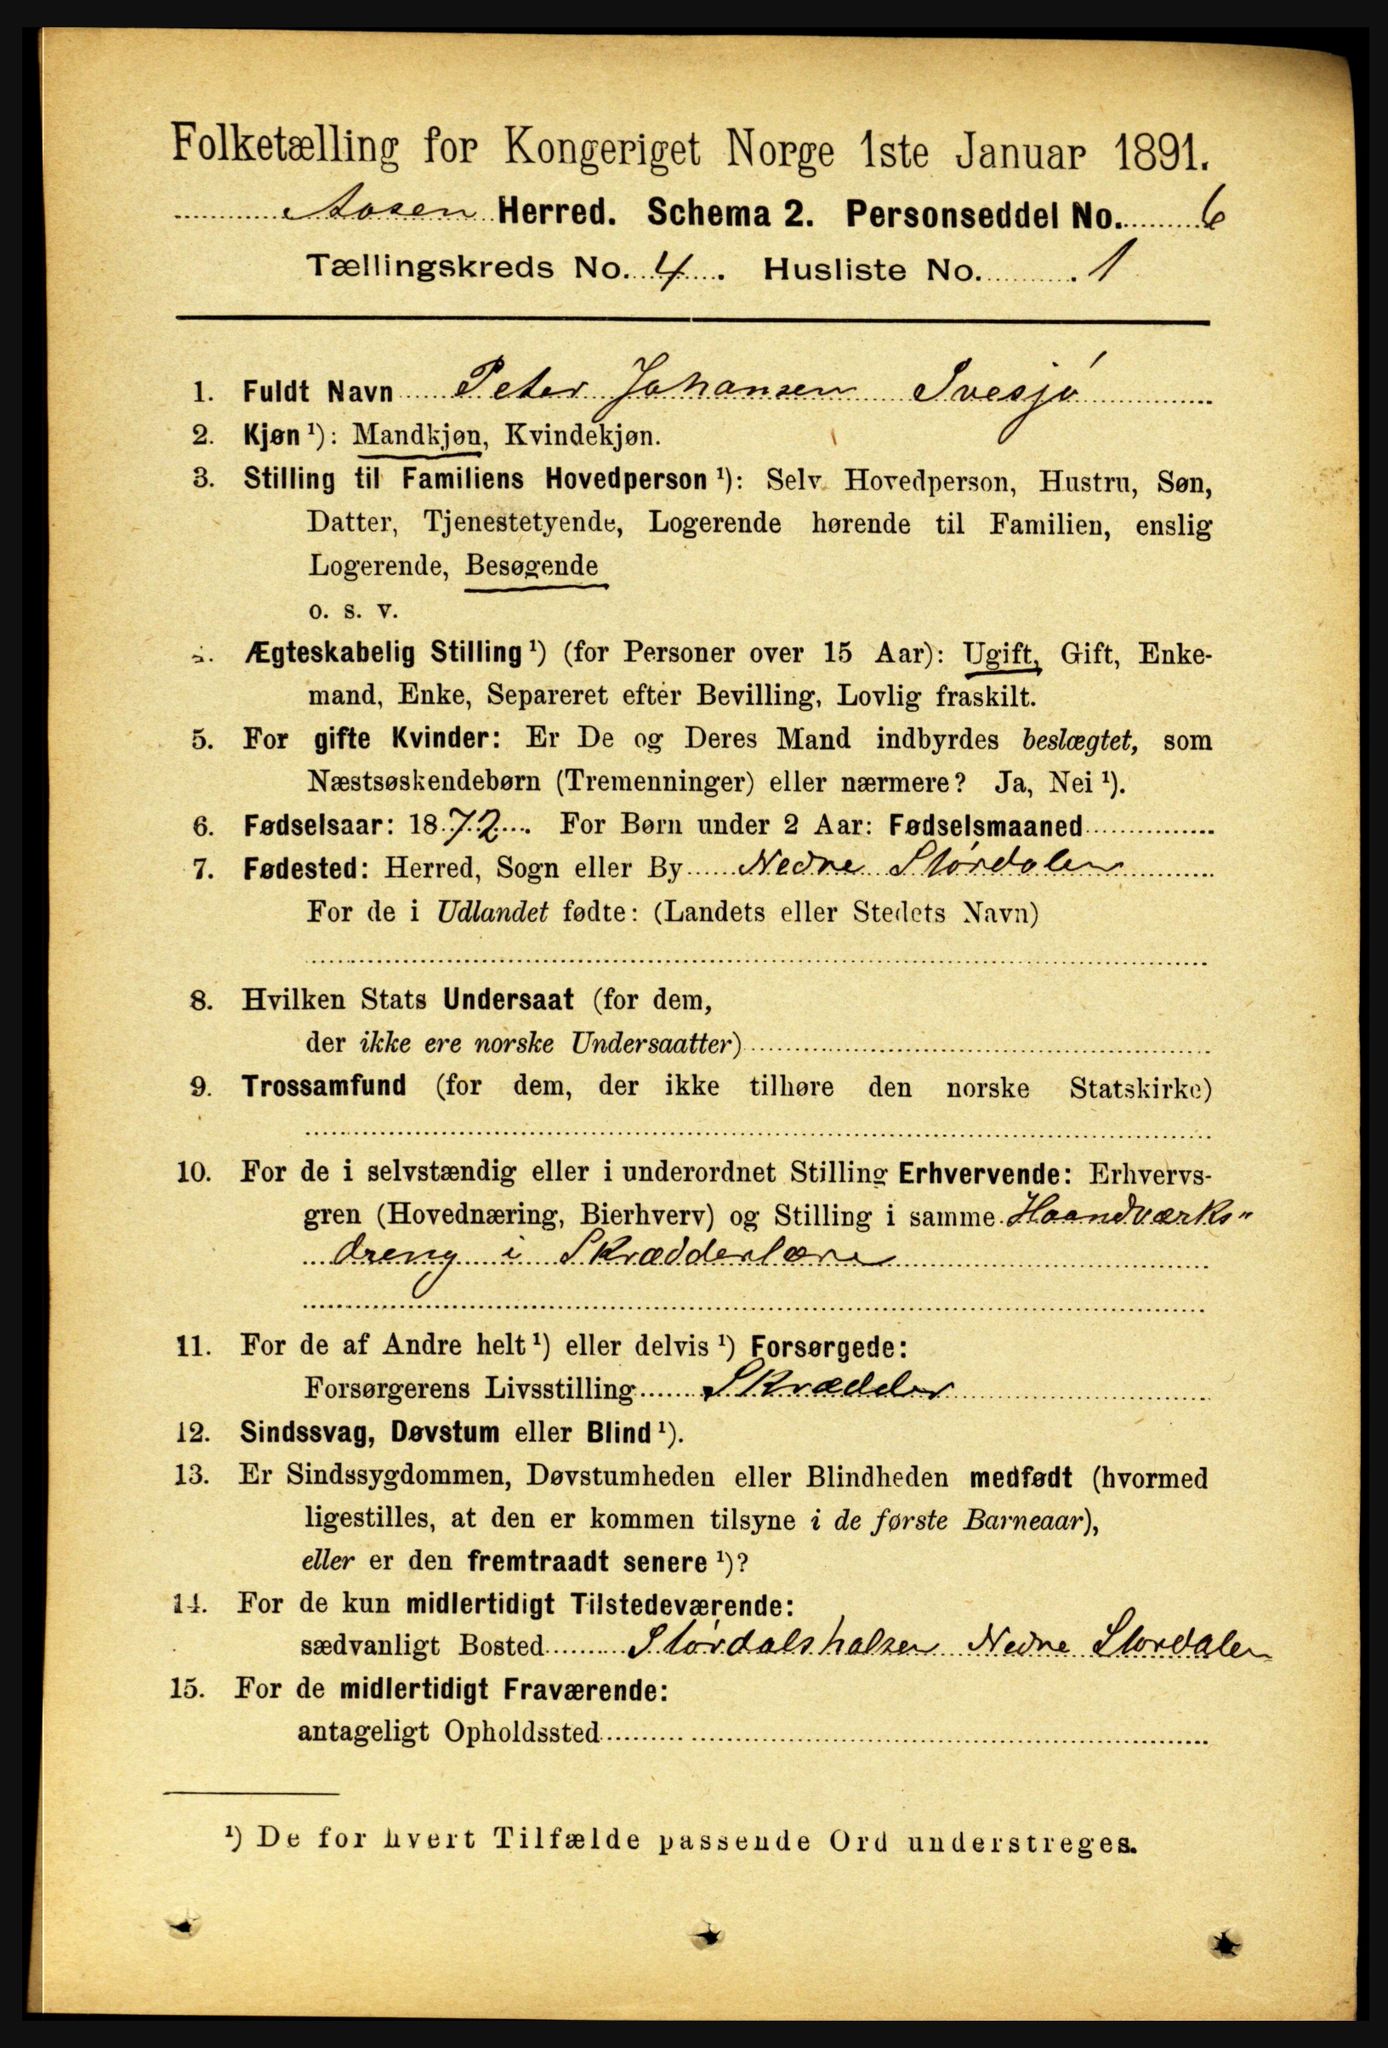 Folketælling for Kongeriget Norge 1ste Januar 1891.
Aasen Herred. Schema 2. Personseddel No. 6
Tællingskreds No. 4. Husliste No. 1
1. Fuldt Navn Peter Johansen Svesjø
2. Kjøn¹): Mandkjøn, Kvindekjøn.
3. Stilling til Familiens Hovedperson¹): Selv Hovedperson, Hustru, Søn,
Datter, Tjenestetyende, Logerende hørende til Familien, enslig
Logerende, Besøgende
o. s. v.
4. Ægteskabelig Stilling¹) (for Personer over 15 Aar): Ugift, Gift, Enke-
mand, Enke, Separeret efter Bevilling, Lovlig fraskilt.
5. For gifte Kvinder: Er De og Deres Mand indbyrdes beslægtet, som
Næstsøskendebørn (Tremenninger) eller nærmere? Ja, Nei¹).
6. Fødselsaar: 1872. For Børn under 2 Aar: Fødselsmaaned
7. Fødested: Herred, Sogn eller By Nedre Størdalen
For de i Udlandet fødte: (Landets eller Stedets Navn)
8. Hvilken Stats Undersaat (for dem,
der ikke ere norske Undersaatter)
9. Trossamfund (for dem, der ikke tilhøre den norske Statskirke)
10. For de i selvstændig eller i underordnet Stilling Erhvervende: Erhvervs-
gren (Hovednæring, Bierhverv) og Stilling i samme Haandværks-
dreng i Skrædderlære
11. For de af Andre helt¹) eller delvis¹) Forsørgede:
Forsørgerens Livsstilling Skrædder
12. Sindssvag, Døvstum eller Blind¹).
13. Er Sindssygdommen, Døvstumheden eller Blindheden medfødt (hvormed
ligestilles, at den er kommen tilsyne i de første Barneaar),
eller er den fremtraadt senere¹)?
14. For de kun midlertidigt Tilstedeværende:
sædvanligt Bosted Størdalshalsen Nedre Størdalen
15. For de midlertidigt Fraværende:
antageligt Opholdssted
¹) De for hvert Tilfælde passende Ord understreges.